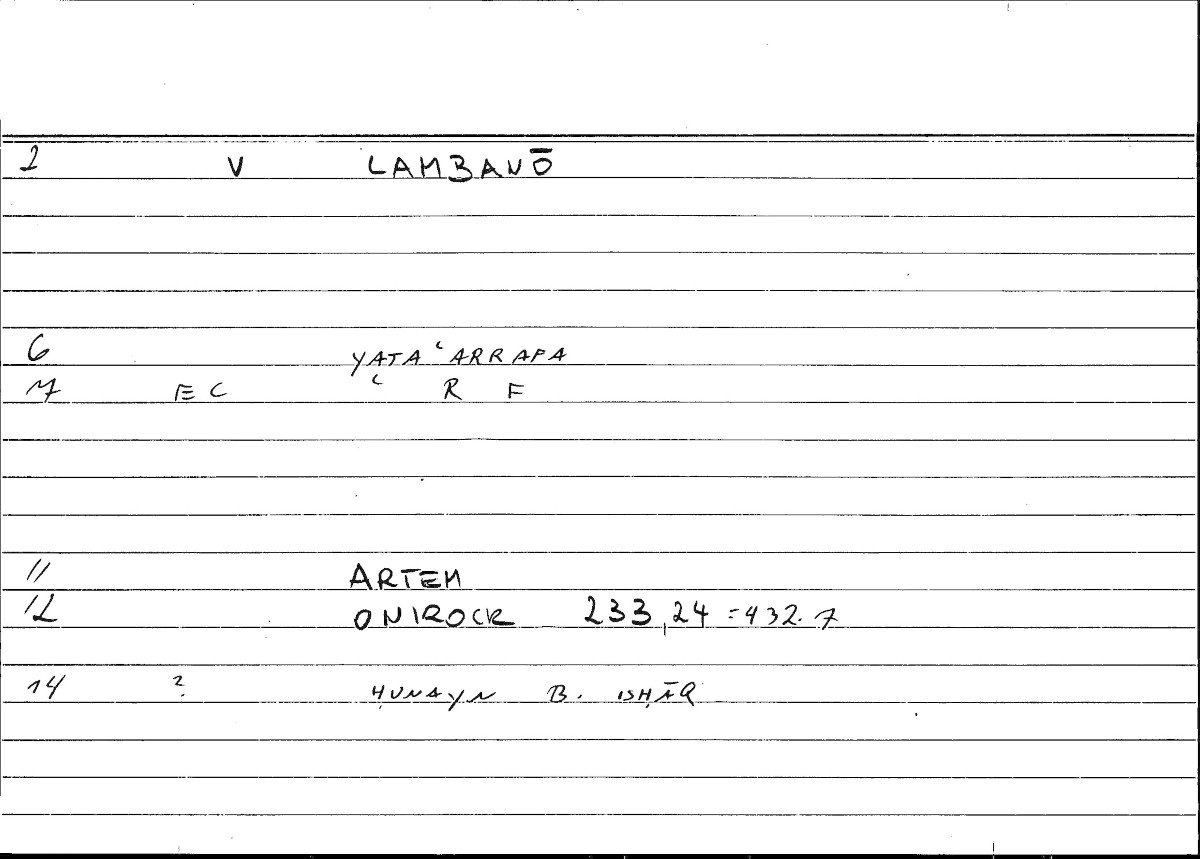 2 V LAMBANŌ
6 YATAʿARRAFA
7 EC ʿ R F
11 ARTEM
12 ONIROCR 233,24 = 432.7
14 ? ḤUNAYN B. ISḤĀQ